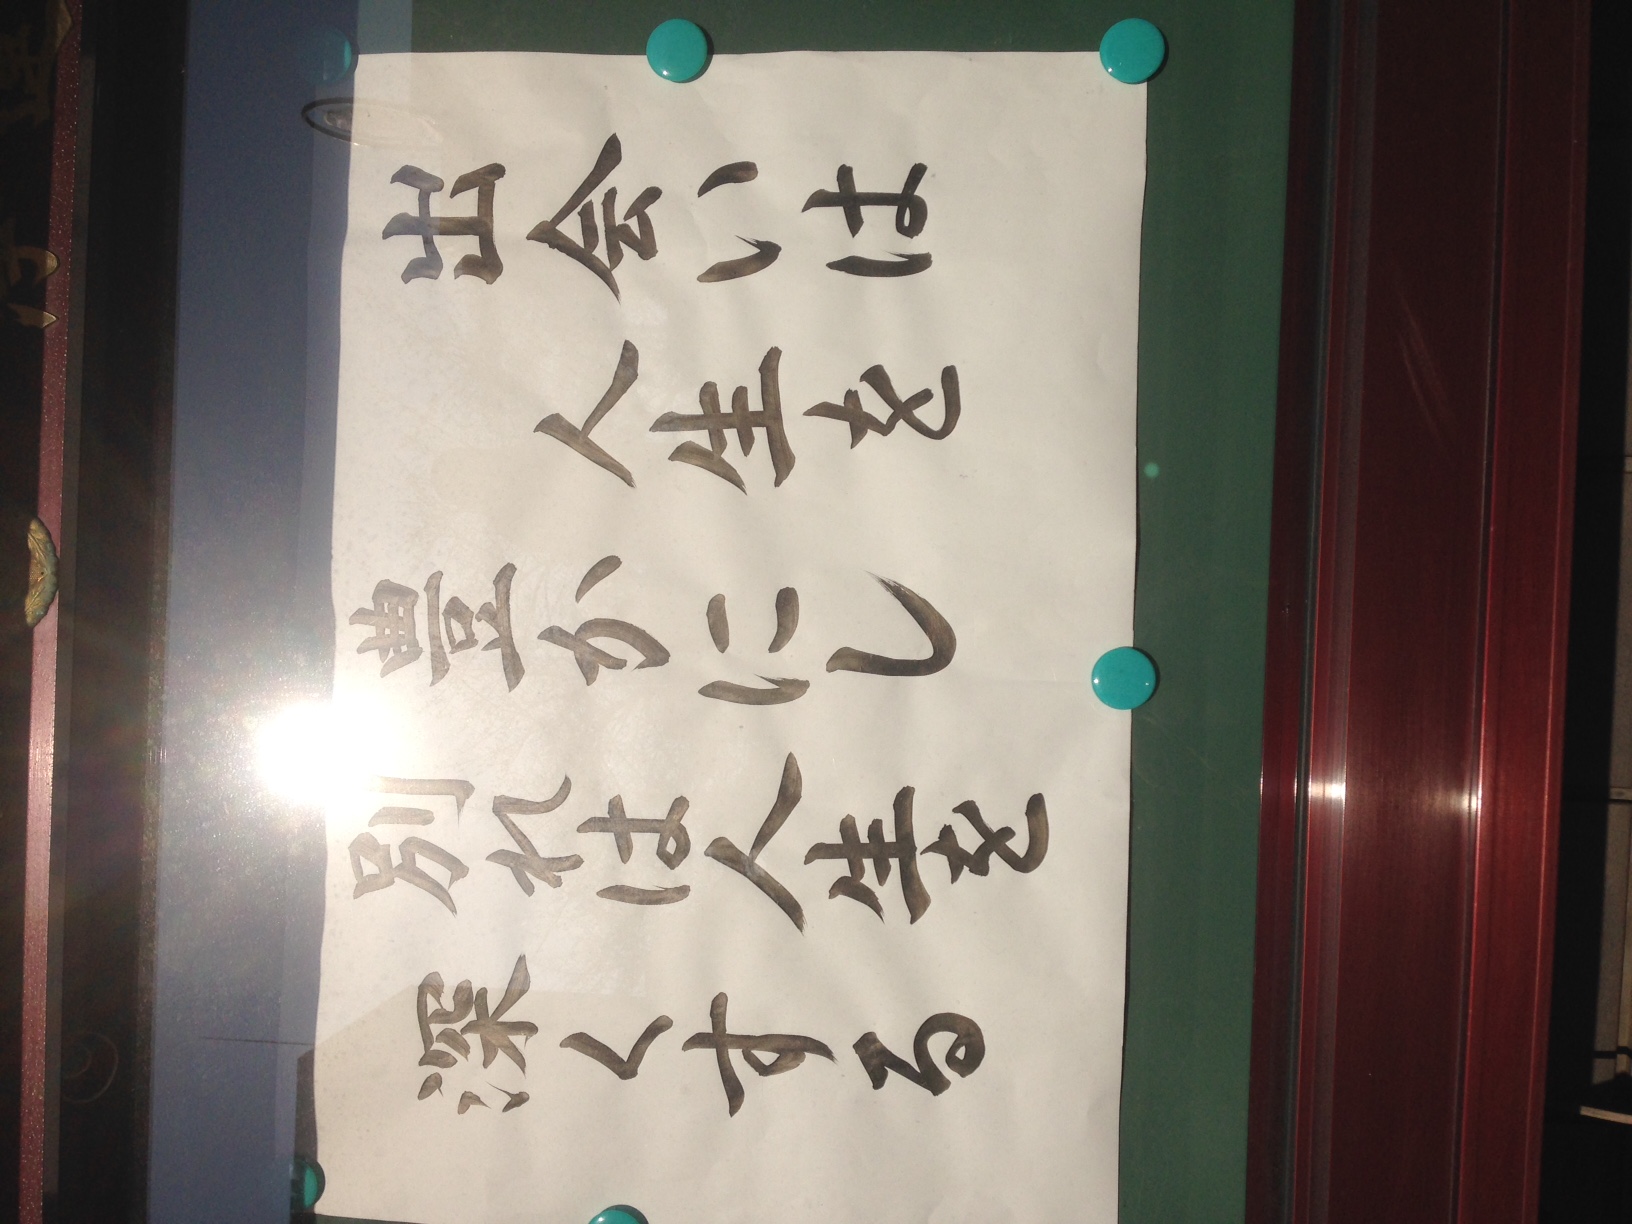 出会いは
人生を
豊かにし
別れは人生を
深くする